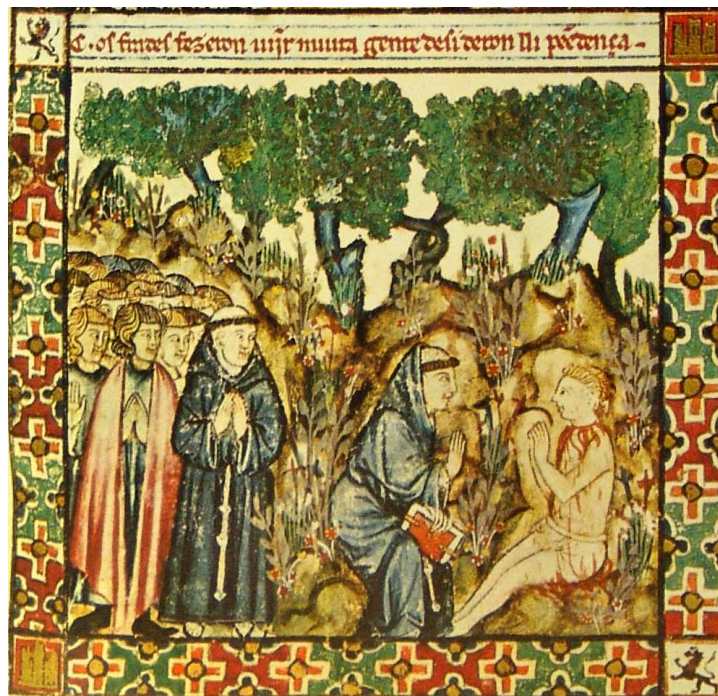 C · os frades fezeron uijr muita gente desi deron lli pẽedença